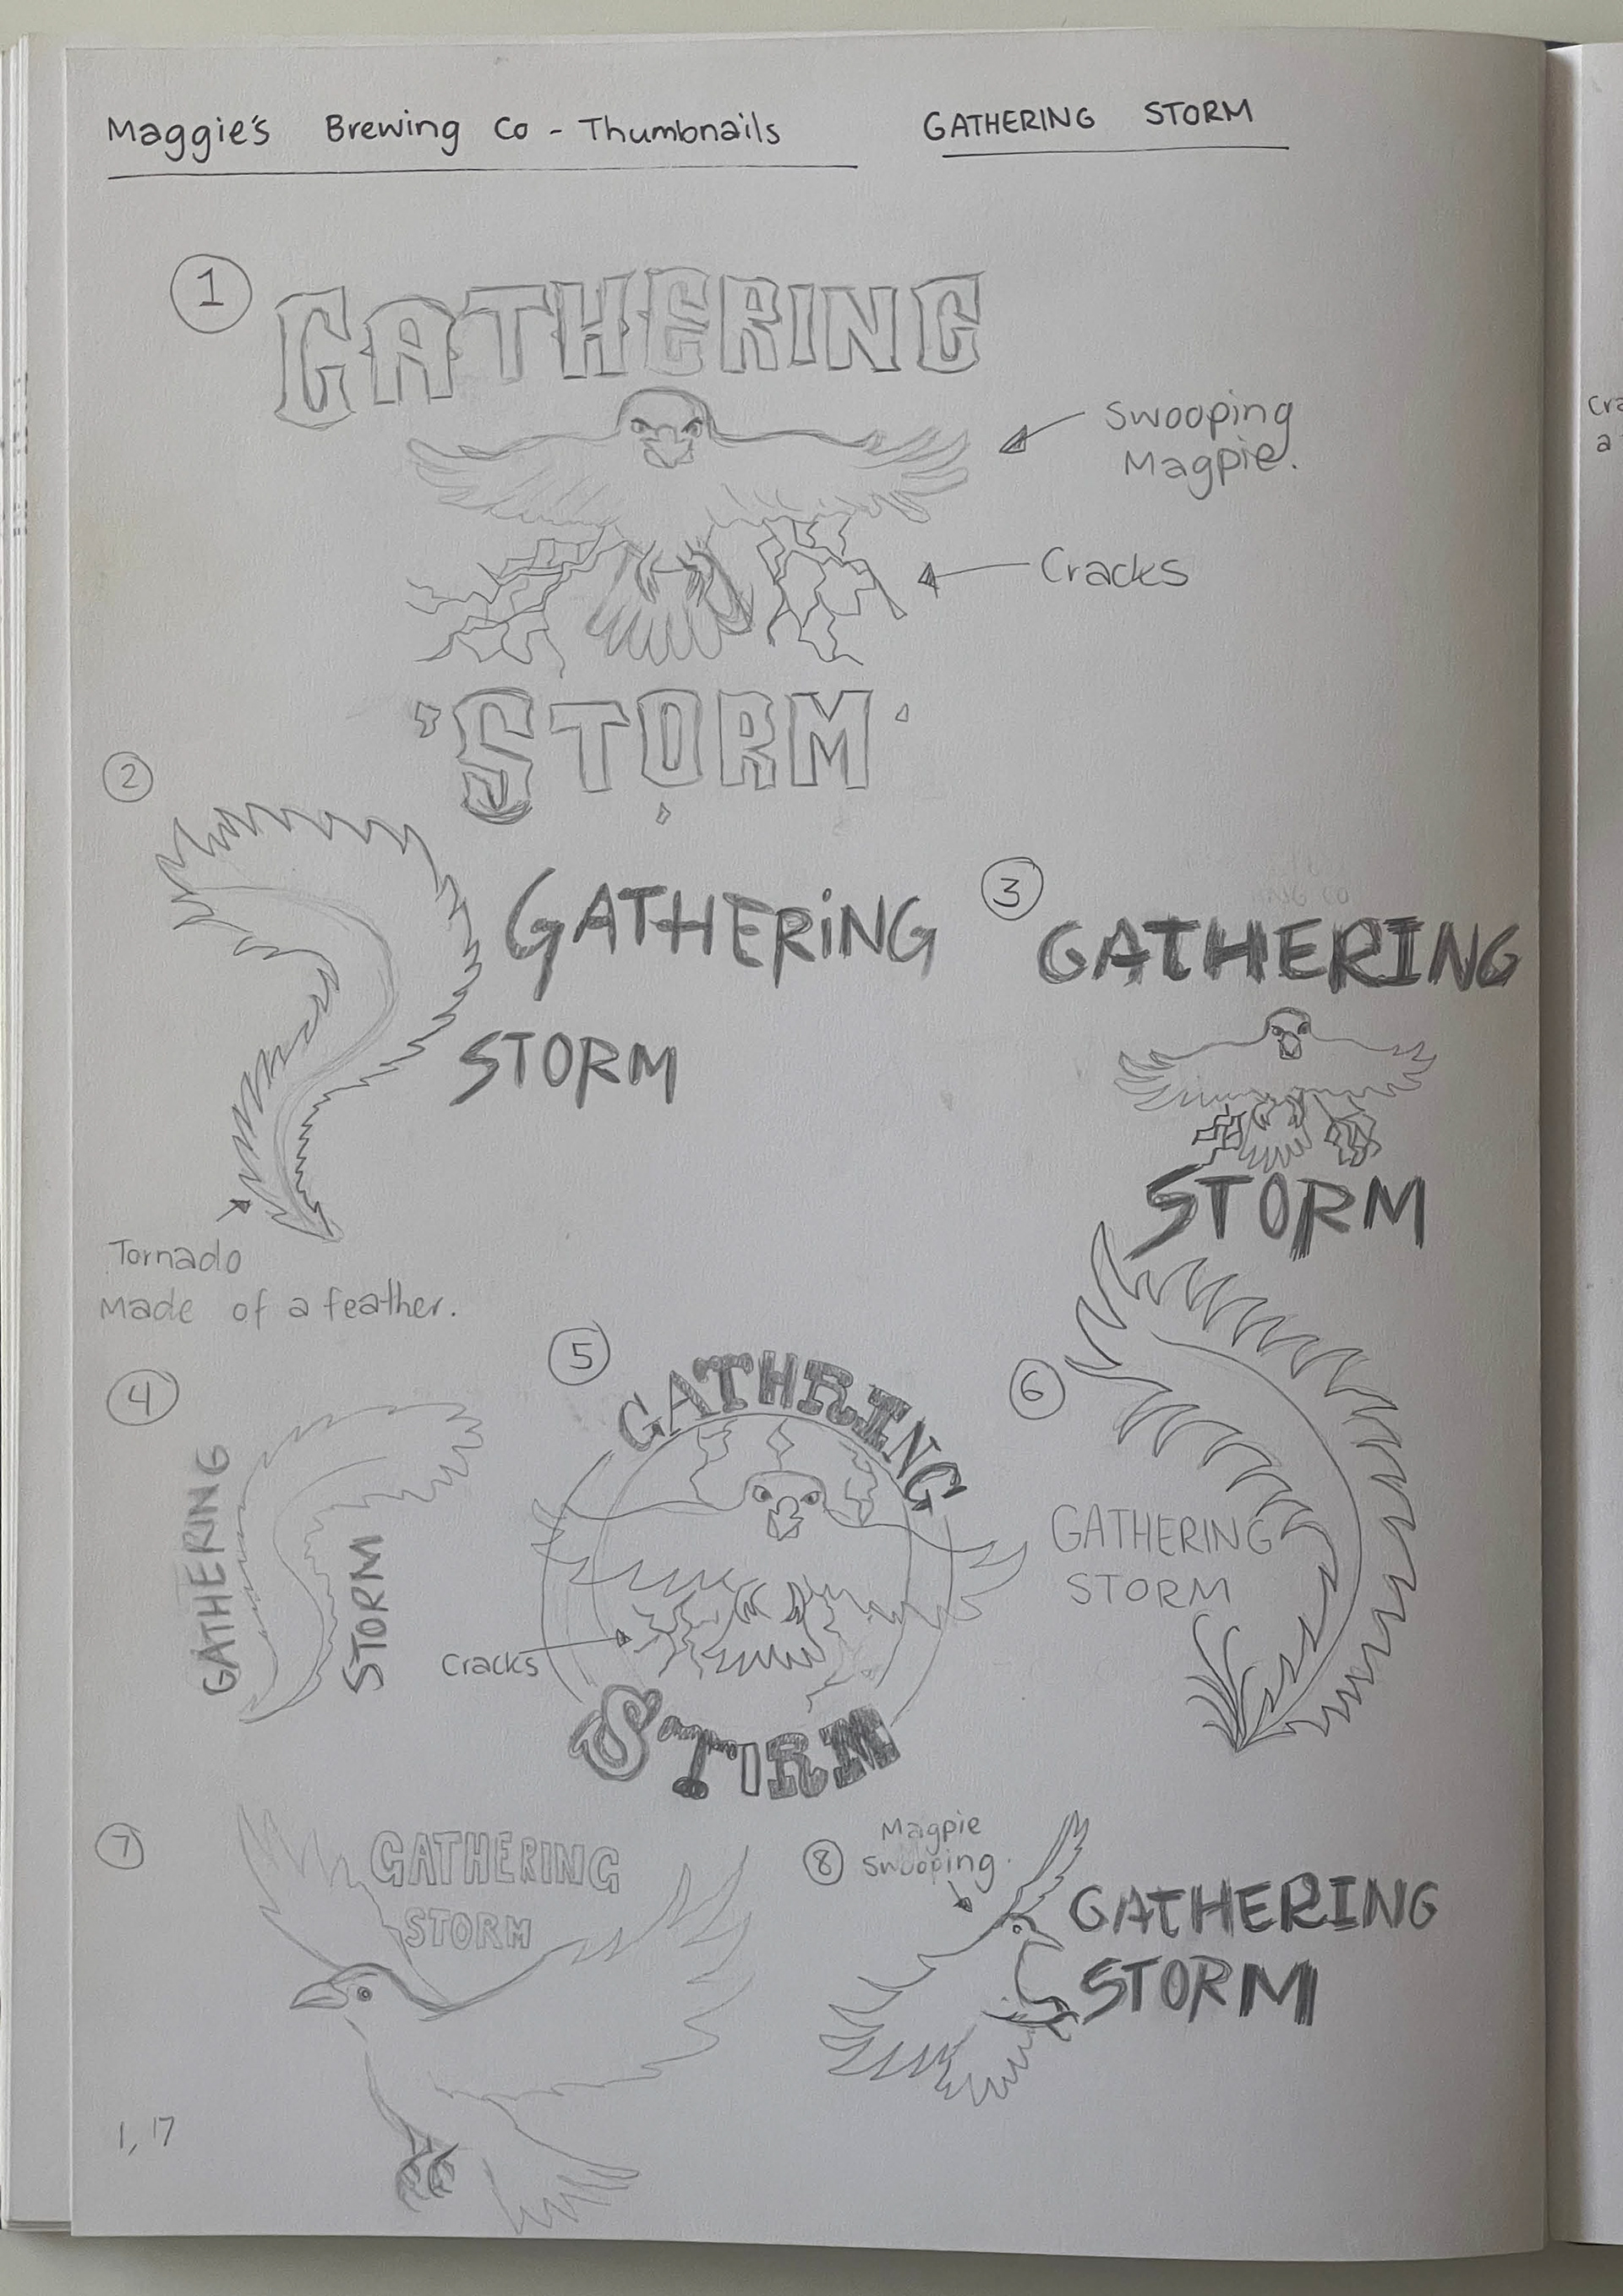 Maggie's Brewing Co - Thumbnails
GATHERING STORM
1
GATHERING
Swooping
Magpie.
Cracks
STORM
2
GATHERiNG
STORM
Tornado
Made of a feather.
3
GATHERING
STORM
4
GATHERING
STORM
5
GATHRING
Cracks
STIRM
6
GATHERING
STORM
7
GATHERING
STORM
8
Magpie
Swooping.
GATHERING
STORM
1, 17